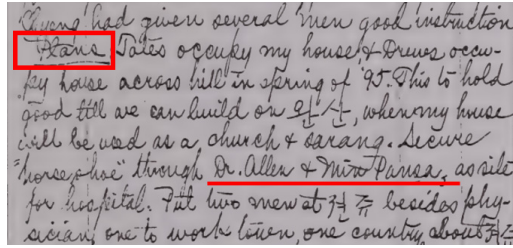 Chyeng had given several men good instruction
Plans Tates occupy my house, & Drews occu-
py house across hill in spring of '95. This to hold
good till we can build on 완산, when my house
will be used as a church & sarang. Secure
"horse shoe" through Dr. Allen & Min Pansa, as site
for hospital. Put two men at 전쥬 besides phy-
sician, one to work town, one country about 전쥬